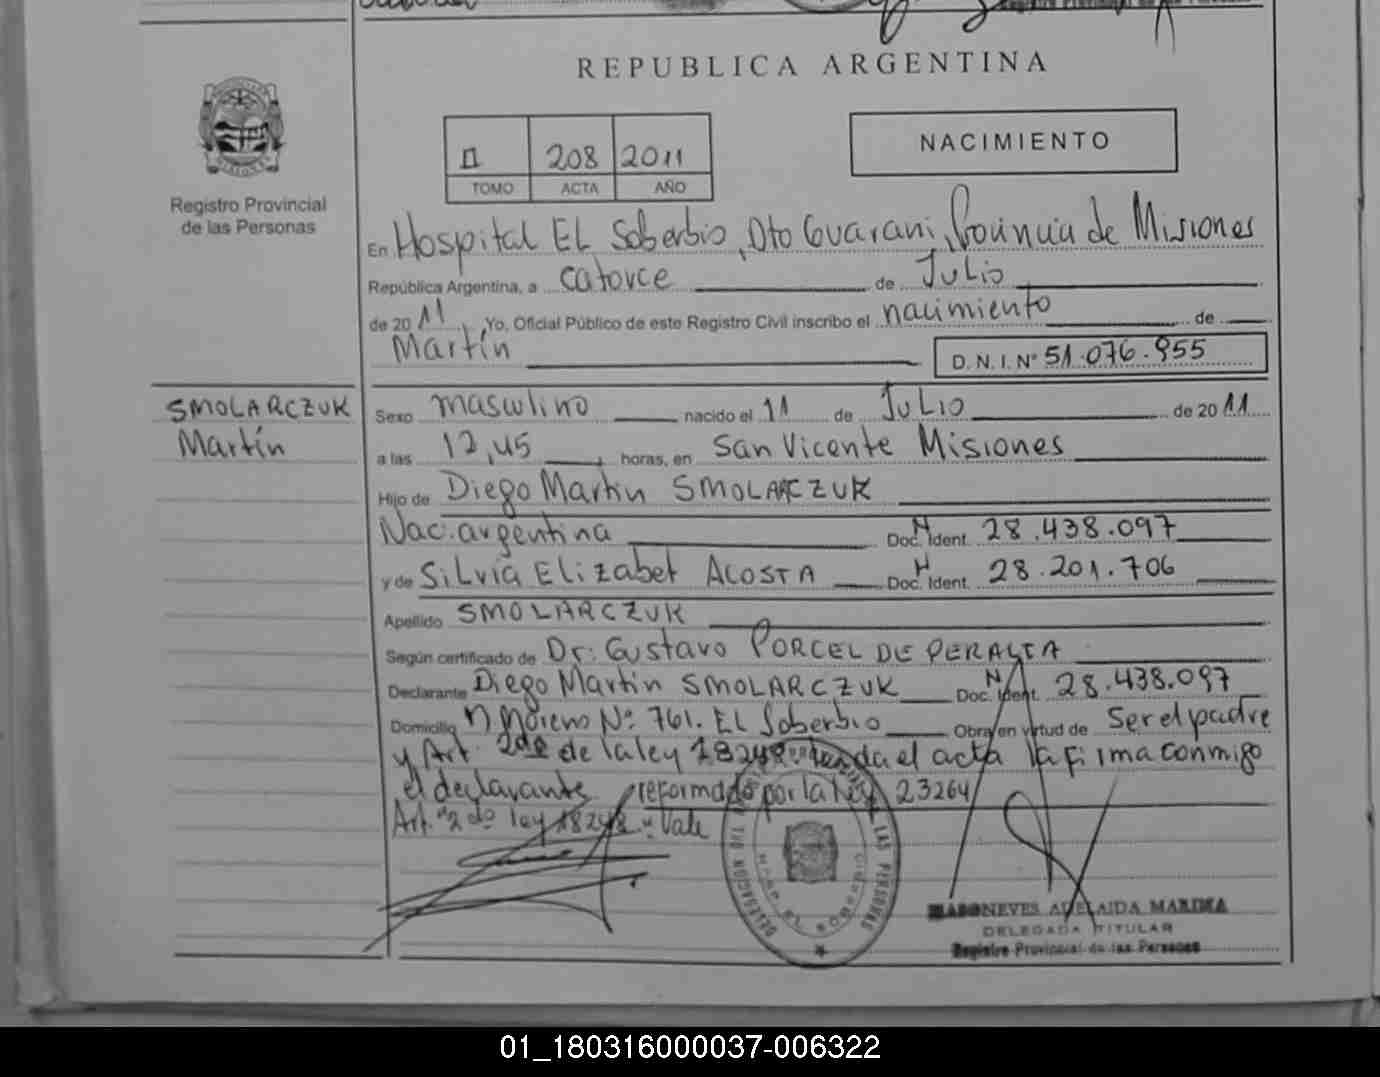 REPUBLICA ARGENTINA
II 208 2011
TOMO ACTA AÑO
NACIMIENTO
Registro Provincial
de las Personas
En Hospital EL Soberbio, Dto Guaraní, Provincia de Misiones
República Argentina, a catorce de Julio
de 2011, Yo, Oficial Público de este Registro Civil inscribo el nacimiento de
Martín
D.N.I. Nº 51.076.955
SMOLARCZUK
Martín
Sexo masculino nacido el 11 de Julio de 2011
a las 12,45 horas, en San Vicente Misiones
Hijo de Diego Martin SMOLARCZUK
Nac. argentina Doc. Ident. 28.438.097
y de Silvia Elizabet ACOSTA Doc. Ident. 28.201.706
Apellido SMOLARCZUK
Según certificado de Dr: Gustavo PORCEL DE PERALTA
Declarante Diego Martin SMOLARCZUK Doc. Ident. 28.438.097
Domicilio M Moreno Nº 761. EL Soberbio Obra en virtud de Ser el padre
y Art. 2do de la ley 18248 el acta la firma conmigo
el declarante reformado por la ley 23264
Art. "2do ley 18248" Vale
DELEGACION LAS PERSONAS
HOSP. EL SOBERBIO
NEVES ADELAIDA MARINA
DELEGADA TITULAR
Registro Provincial de las Personas
01_180316000037-006322